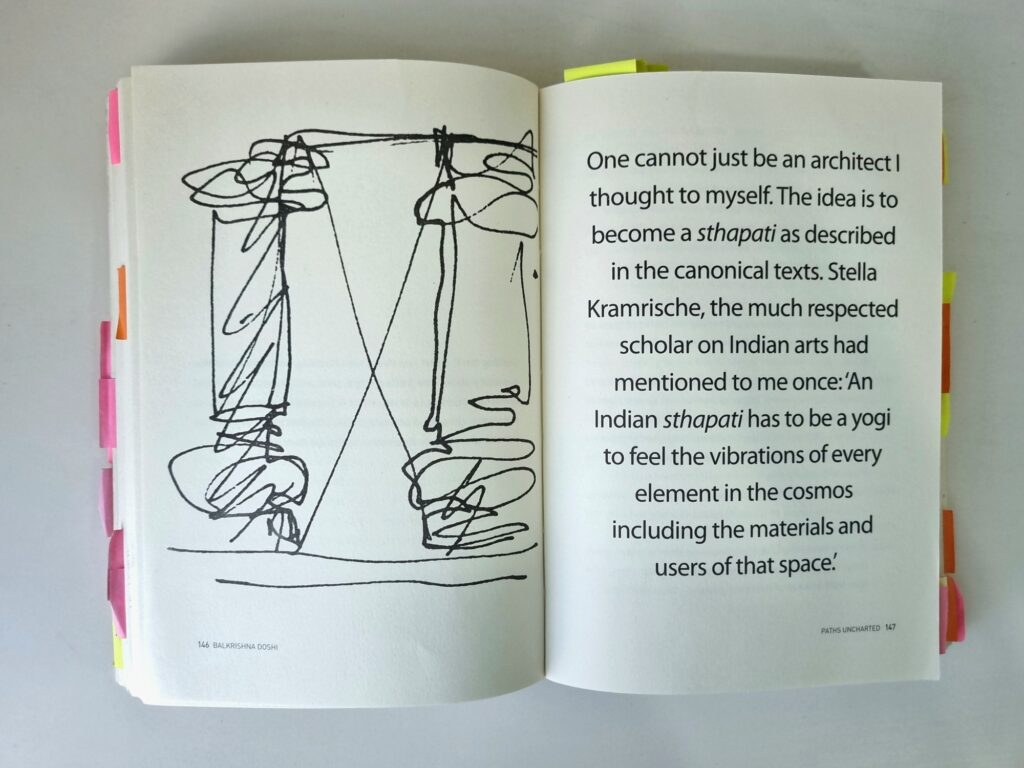 146 BALKRISHNA DOSHI
One cannot just be an architect I
thought to myself. The idea is to
become a sthapati as described
in the canonical texts. Stella
Kramrische, the much respected
scholar on Indian arts had
mentioned to me once: ‘An
Indian sthapati has to be a yogi
to feel the vibrations of every
element in the cosmos
including the materials and
users of that space.’
PATHS UNCHARTED 147